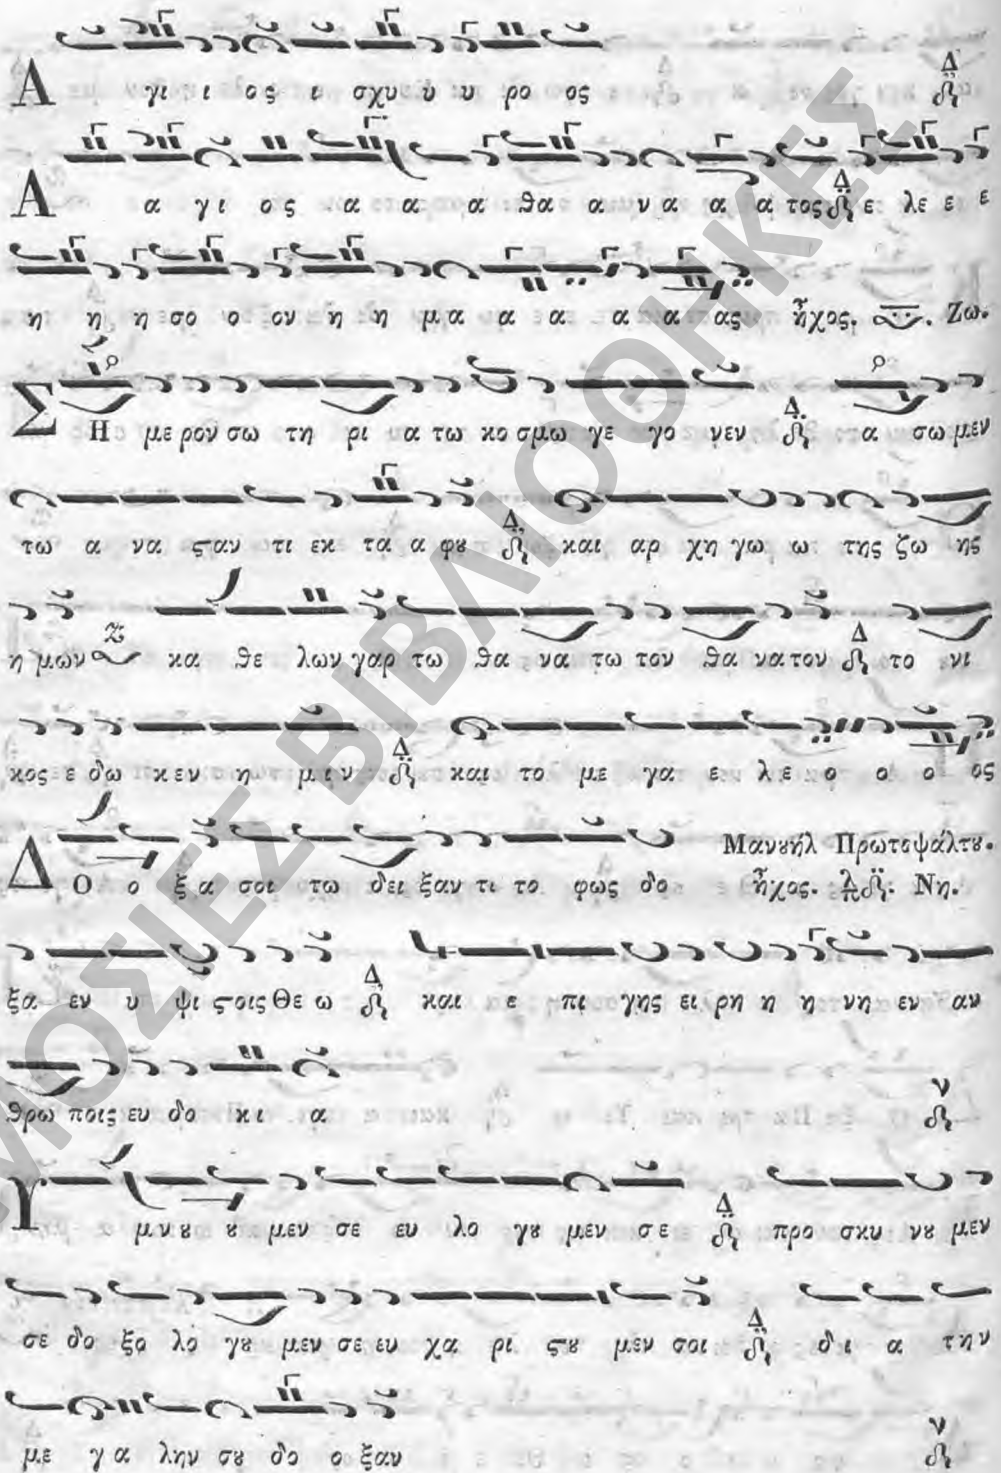 Α γι ι ος ι σχυ ὺ υ ρο ος Δ
Α α γι ος α α α θα α να α α τος Δ ε λε ε ε
η η η σο ο ον η η μα α α α α ας ἦχος. Ζω.
Σ Η με ρον σω τη ρι α τω κο σμω γε γο νεν Δ α σω μεν
τω α να ϛαν τι εκ τα α φȣ Δ και αρ χη γω ω της ζω ης
η μων Ζ κα θε λων γαρ τω θα να τω τον θα νατον Δ το νι
κος ε δω κεν η μιν Δ και το με γα ε λε ο ο ο ος
Μανȣήλ Πρωτοψάλτȣ.
Δ Ο ο ξα σοι τω δει ξαν τι το φως δο ἦχος. Νη.
ξα εν υ ψι ϛοις Θε ω Δ και ε πι γης ει ρη η η νη εν αν
θρω ποις ευ δο κι α ν
Υ μνȣ ȣ μεν σε ευ λο γȣ μεν σε Δ προ σκυ νȣ μεν
σε δο ξο λο γȣ μεν σε ευ χα ρι ϛȣ μεν σοι Δ δι α την
με γα λην σȣ δο ο ξαν ν
ΜΟΣΙΕΣ ΒΙΒΛΙΟΘΗΚΕΣ